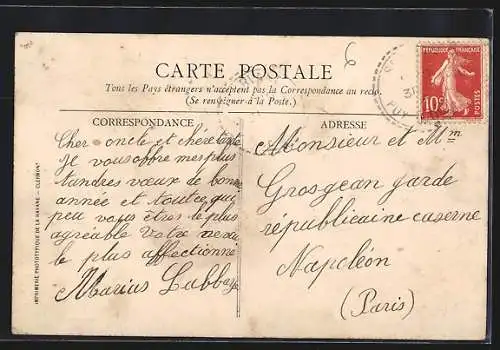 CARTE POSTALE
Tous les Pays étrangers n'acceptent pas la Correspondance au recto
(Se renseigner à la Poste.)
CORRESPONDANCE
Cher oncle et chère tante
Je vous offre mes plus
tendres vœux de bonne
année et toute qui
peu vous êtres le plus
agréable Votre neveu
le plus affectionné
Marius Labbaye
ADRESSE
Monsieur et Mm
Grosgean garde
républicaine caserne
Napoléon
(Paris)
RÉPUBLIQUE FRANÇAISE
10c
POSTES
PUY
IMPRIMERIE PHOTOTYPIQUE DE LA HAVANE — CLERMONT